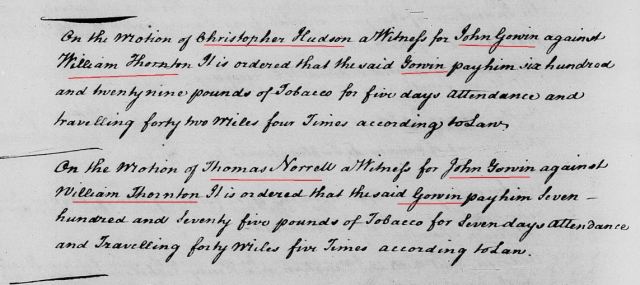 On the Motion of Christopher Hudson a Witness for John Gowin against
William Thornton It is ordered that the said Gowin pay him six hundred
and twenty nine pounds of Tobacco for five days attendance and
travelling forty two Miles four Times according to Law.
On the Motion of Thomas Norrell a Witness for John Gowin against
William Thornton It is ordered that the said Gowin pay him Seven-
hundred and Seventy five pounds of Tobacco for Seven days Attendance
and Travelling forty Miles five Times according to Law.